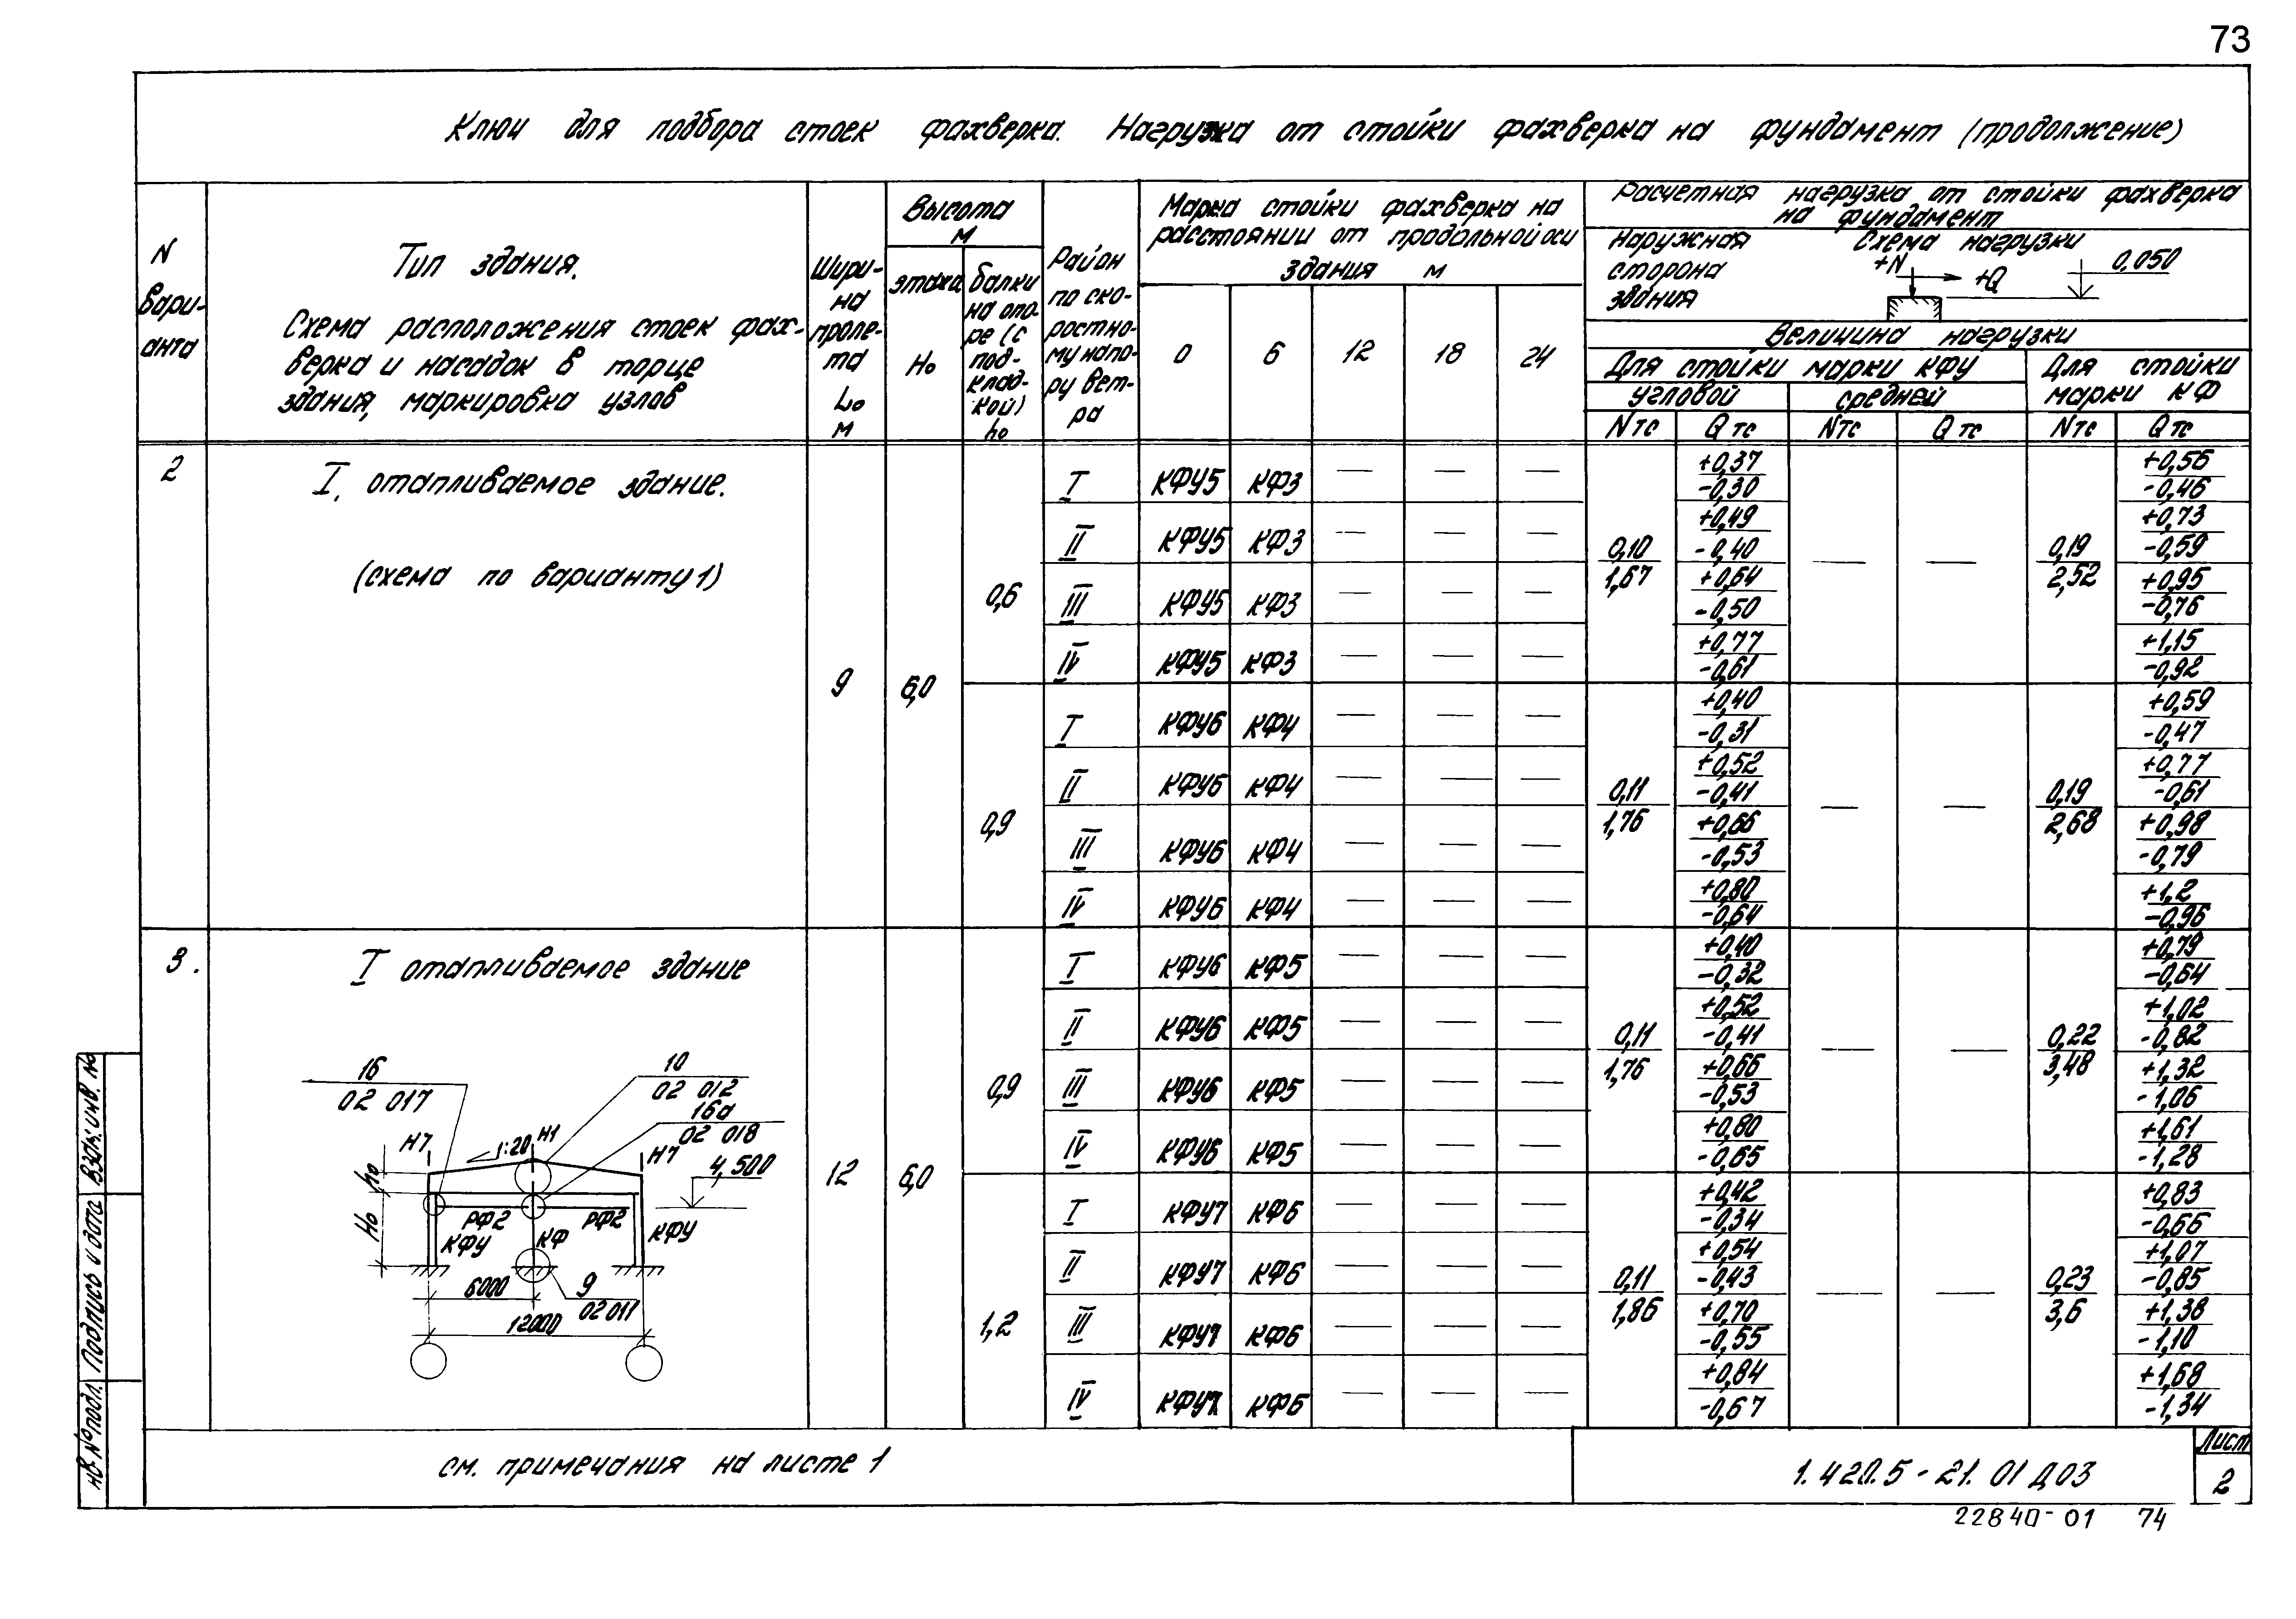 73
Ключи для подбора стоек фахверка. Нагрузка от стойки фахверка на фундамент (продолжение)
N вари-анта
Тип здания.
Схема расположения стоек фах-
верка и насадок в торце
здания, маркировка узлов
Шири-на проле-та Lо м
Высота м
этажа Hо
балки на опо-ре (с под-клад-кой) hо
Район по ско-ростно-му напо-ру вет-ра
Марка стойки фахверка на
расстоянии от продольной оси
здания м
0 6 12 18 24
Расчетная нагрузка от стойки фахверка
на фундамент
наружная сторона здания
Схема нагрузки
+N +Q 0,050
Величина нагрузки
Для стойки марки КФУ
Для стойки марки КФ
угловой средней
Nтс Qтс Nтс Qтс Nтс Qтс
2
I, отапливаемое здание.
(схема по варианту 1)
9 6,0
0,6
I КФУ5 КФ3 — — — +0,37 -0,30 +0,56 -0,46
II КФУ5 КФ3 — — — +0,49 -0,40 +0,73 -0,59
0,10 1,67 — — 0,19 2,52
III КФУ5 КФ3 — — — +0,64 -0,50 +0,95 -0,76
IV КФУ5 КФ3 — — — +0,77 -0,61 +1,15 -0,92
0,9
I КФУ6 КФ4 — — — +0,40 -0,31 +0,59 -0,47
II КФУ6 КФ4 — — — +0,52 -0,41 +0,77 -0,61
0,11 1,76 — — 0,19 2,68
III КФУ6 КФ4 — — — +0,66 -0,53 +0,98 -0,79
IV КФУ6 КФ4 — — — +0,80 -0,64 +1,2 -0,96
3.
I отапливаемое здание
12 6,0
0,9
I КФУ6 КФ5 — — — +0,40 -0,32 +0,79 -0,64
II КФУ6 КФ5 — — — +0,52 -0,41 +1,02 -0,82
0,11 1,76 — — 0,22 3,48
III КФУ6 КФ5 — — — +0,66 -0,53 +1,32 -1,06
IV КФУ6 КФ5 — — — +0,80 -0,65 +1,61 -1,28
1,2
I КФУ7 КФ6 — — — +0,42 -0,34 +0,83 -0,66
II КФУ7 КФ6 — — — +0,54 -0,43 +1,07 -0,85
0,11 1,86 — — 0,23 3,6
III КФУ7 КФ6 — — — +0,70 -0,55 +1,38 -1,10
IV КФУ7 КФ6 — — — +0,84 -0,67 +1,68 -1,34
16
02 017
10
02 012
16а
02 018
Н7 1:20 Н1 Н7
4,500
hо
Hо
РФ2 РФ2
КФУ КФ КФУ
6000
9
02 011
12000
Взам. инв. №
Подпись и дата
нв. № подл.
см. примечания на листе 1
1.420.5-21.01 Д03
Лист
2
22840-01 74